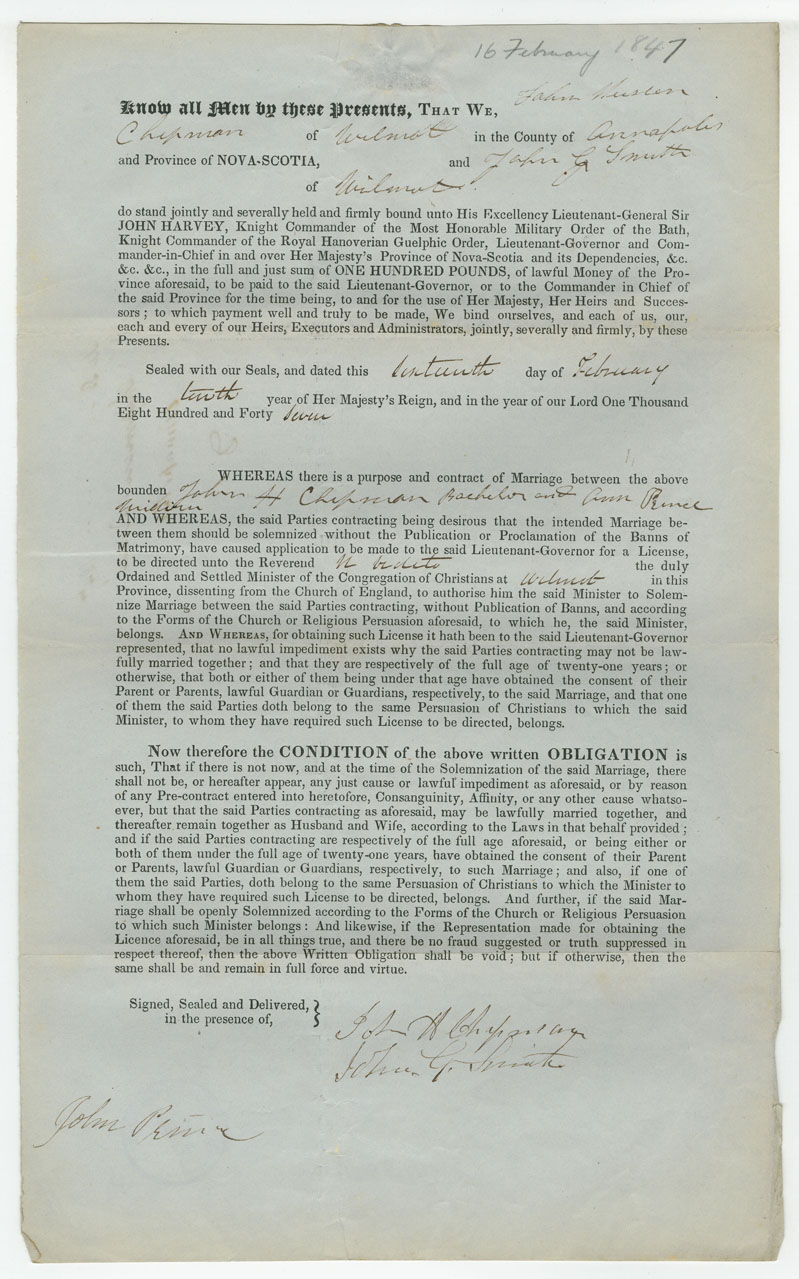 16 February 1847
Know all Men by these Presents, THAT WE, John
Chipman of Wilmot in the County of Annapolis
and Province of NOVA-SCOTIA, and John G Smith
of Wilmot
do stand jointly and severally held and firmly bound unto His Excellency Lieutenant-General Sir
JOHN HARVEY, Knight Commander of the Most Honorable Military Order of the Bath,
Knight Commander of the Royal Hanoverian Guelphic Order, Lieutenant-Governor and Com-
mander-in-Chief in and over Her Majesty's Province of Nova-Scotia and its Dependencies, &c.
&c. &c., in the full and just sum of ONE HUNDRED POUNDS, of lawful Money of the Pro-
vince aforesaid, to be paid to the said Lieutenant-Governor, or to the Commander in Chief of
the said Province for the time being, to and for the use of Her Majesty, Her Heirs and Succes-
sors ; to which payment well and truly to be made, We bind ourselves, and each of us, our,
each and every of our Heirs, Executors and Administrators, jointly, severally and firmly, by these
Presents.
Sealed with our Seals, and dated this sixteenth day of February
in the tenth year of Her Majesty's Reign, and in the year of our Lord One Thousand
Eight Hundred and Forty seven
WHEREAS there is a purpose and contract of Marriage between the above
bounden John H Chipman Bachelor and Ann Prince
AND WHEREAS, the said Parties contracting being desirous that the intended Marriage be-
tween them should be solemnized without the Publication or Proclamation of the Banns of
Matrimony, have caused application to be made to the said Lieutenant-Governor for a License,
to be directed unto the Reverend the duly
Ordained and Settled Minister of the Congregation of Christians at Wilmot in this
Province, dissenting from the Church of England, to authorise him the said Minister to Solem-
nize Marriage between the said Parties contracting, without Publication of Banns, and according
to the Forms of the Church or Religious Persuasion aforesaid, to which he, the said Minister,
belongs. AND WHEREAS, for obtaining such License it hath been to the said Lieutenant-Governor
represented, that no lawful impediment exists why the said Parties contracting may not be law-
fully married together ; and that they are respectively of the full age of twenty-one years ; or
otherwise, that both or either of them being under that age have obtained the consent of their
Parent or Parents, lawful Guardian or Guardians, respectively, to the said Marriage, and that one
of them the said Parties doth belong to the same Persuasion of Christians to which the said
Minister, to whom they have required such License to be directed, belongs.
Now therefore the CONDITION of the above written OBLIGATION is
such, That if there is not now, and at the time of the Solemnization of the said Marriage, there
shall not be, or hereafter appear, any just cause or lawful impediment as aforesaid, or by reason
of any Pre-contract entered into heretofore, Consanguinity, Affinity, or any other cause whatso-
ever, but that the said Parties contracting as aforesaid, may be lawfully married together, and
thereafter remain together as Husband and Wife, according to the Laws in that behalf provided ;
and if the said Parties contracting are respectively of the full age aforesaid, or being either or
both of them under the full age of twenty-one years, have obtained the consent of their Parent
or Parents, lawful Guardian or Guardians, respectively, to such Marriage ; and also, if one of
them the said Parties, doth belong to the same Persuasion of Christians to which the Minister to
whom they have required such License to be directed, belongs. And further, if the said Mar-
riage shall be openly Solemnized according to the Forms of the Church or Religious Persuasion
to which such Minister belongs : And likewise, if the Representation made for obtaining the
Licence aforesaid, be in all things true, and there be no fraud suggested or truth suppressed in
respect thereof, then the above Written Obligation shall be void ; but if otherwise, then the
same shall be and remain in full force and virtue.
Signed, Sealed and Delivered,
in the presence of,
John H Chipman
John G. Smith
John Prince